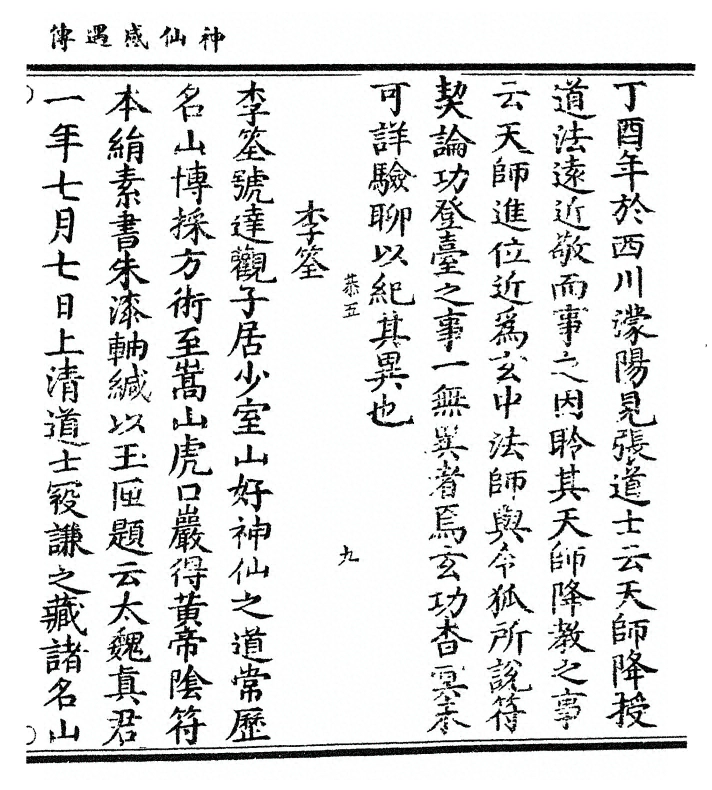 神仙感遇傳
丁酉年於西川濛陽見張道士云天師降授
道法遠近敬而事之因聆其天師降教之事
云天師進位近為玄中法師與令狐所說符
契論功登臺之事一無異者焉玄功杳冥未
可詳驗聊以紀其異也
恭五
九
李筌
李筌號達觀子居少室山好神仙之道常歷
名山博採方術至嵩山虎口巖得黃帝陰符
本絹素書朱漆軸緘以玉匣題云太魏真君
一年七月七日上清道士寇謙之藏諸名山